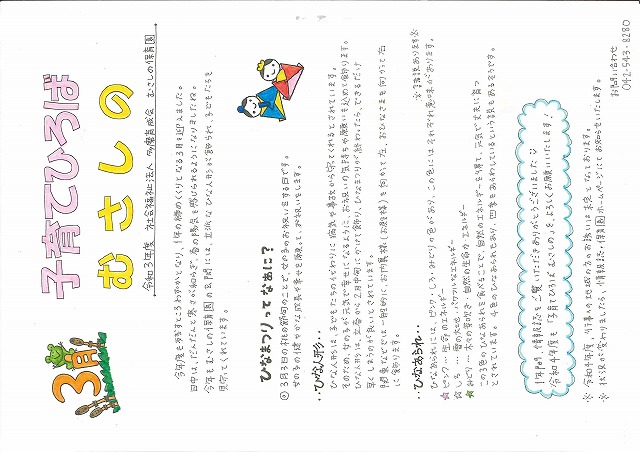 3月
子育てひろば
むさしの
令和3年度 社会福祉法人 多摩育成会 むさしの保育園
今年度も残すところわずかとなり、1年の締めくくりとなる3月を迎えました。
日中は、だんだんと寒さが和らぎ、春の陽気を感じられるようになりましたね。
今年もむさしの保育園の玄関には、立派なひな人形が飾られ、子どもたちを
見守ってくれています。
ひなまつりってなあに?
◎3月3日の桃の節句のことで、女の子のお祝いをする日です。
女の子の健やかな成長や幸せを願って、お祝いをします。
・・ひな人形・・
ひな人形は、子どもたちの代わりに病気や事故から守ってくれるとされています。
そのため、女の子が元気で幸せになるように、お祝いの気持ちや願いを込めて飾ります。
ひな人形は、立春から2月中旬にかけて飾り、ひなまつりが終わったら、できるだけ
早くしまうのが良いとされています。
関東などでは一般的に、お内裏様(お殿様)を向かって左、おひなさまを向かって右
に飾ります。
・・ひなあられ・・
※諸説あります※
ひなあられには、ピンク、しろ、みどりの色があり、この色にはそれぞれ意味があります。
★ピンク…生命のエネルギー
★しろ…雪の大地のパワフルなエネルギー
★みどり…木々の芽吹き・自然の生命力エネルギー
この3色のひなあられを食べることで、自然のエネルギーを得て、元気で丈夫に育つ
とされています。4色のひなあられもあり、四季をあらわしているという説もあるそうです。
1年間、情報誌をご覧いただきありがとうございました
令和4年度も「子育てひろばむさしの」を、よろしくお願いいたします!
※令和4年度、行事の地域の方のお誘いは未定となっております。
※状況が変わりましたら、情報誌・保育園ホームページにてお知らせいたします。
お問い合わせ
042-543-8280